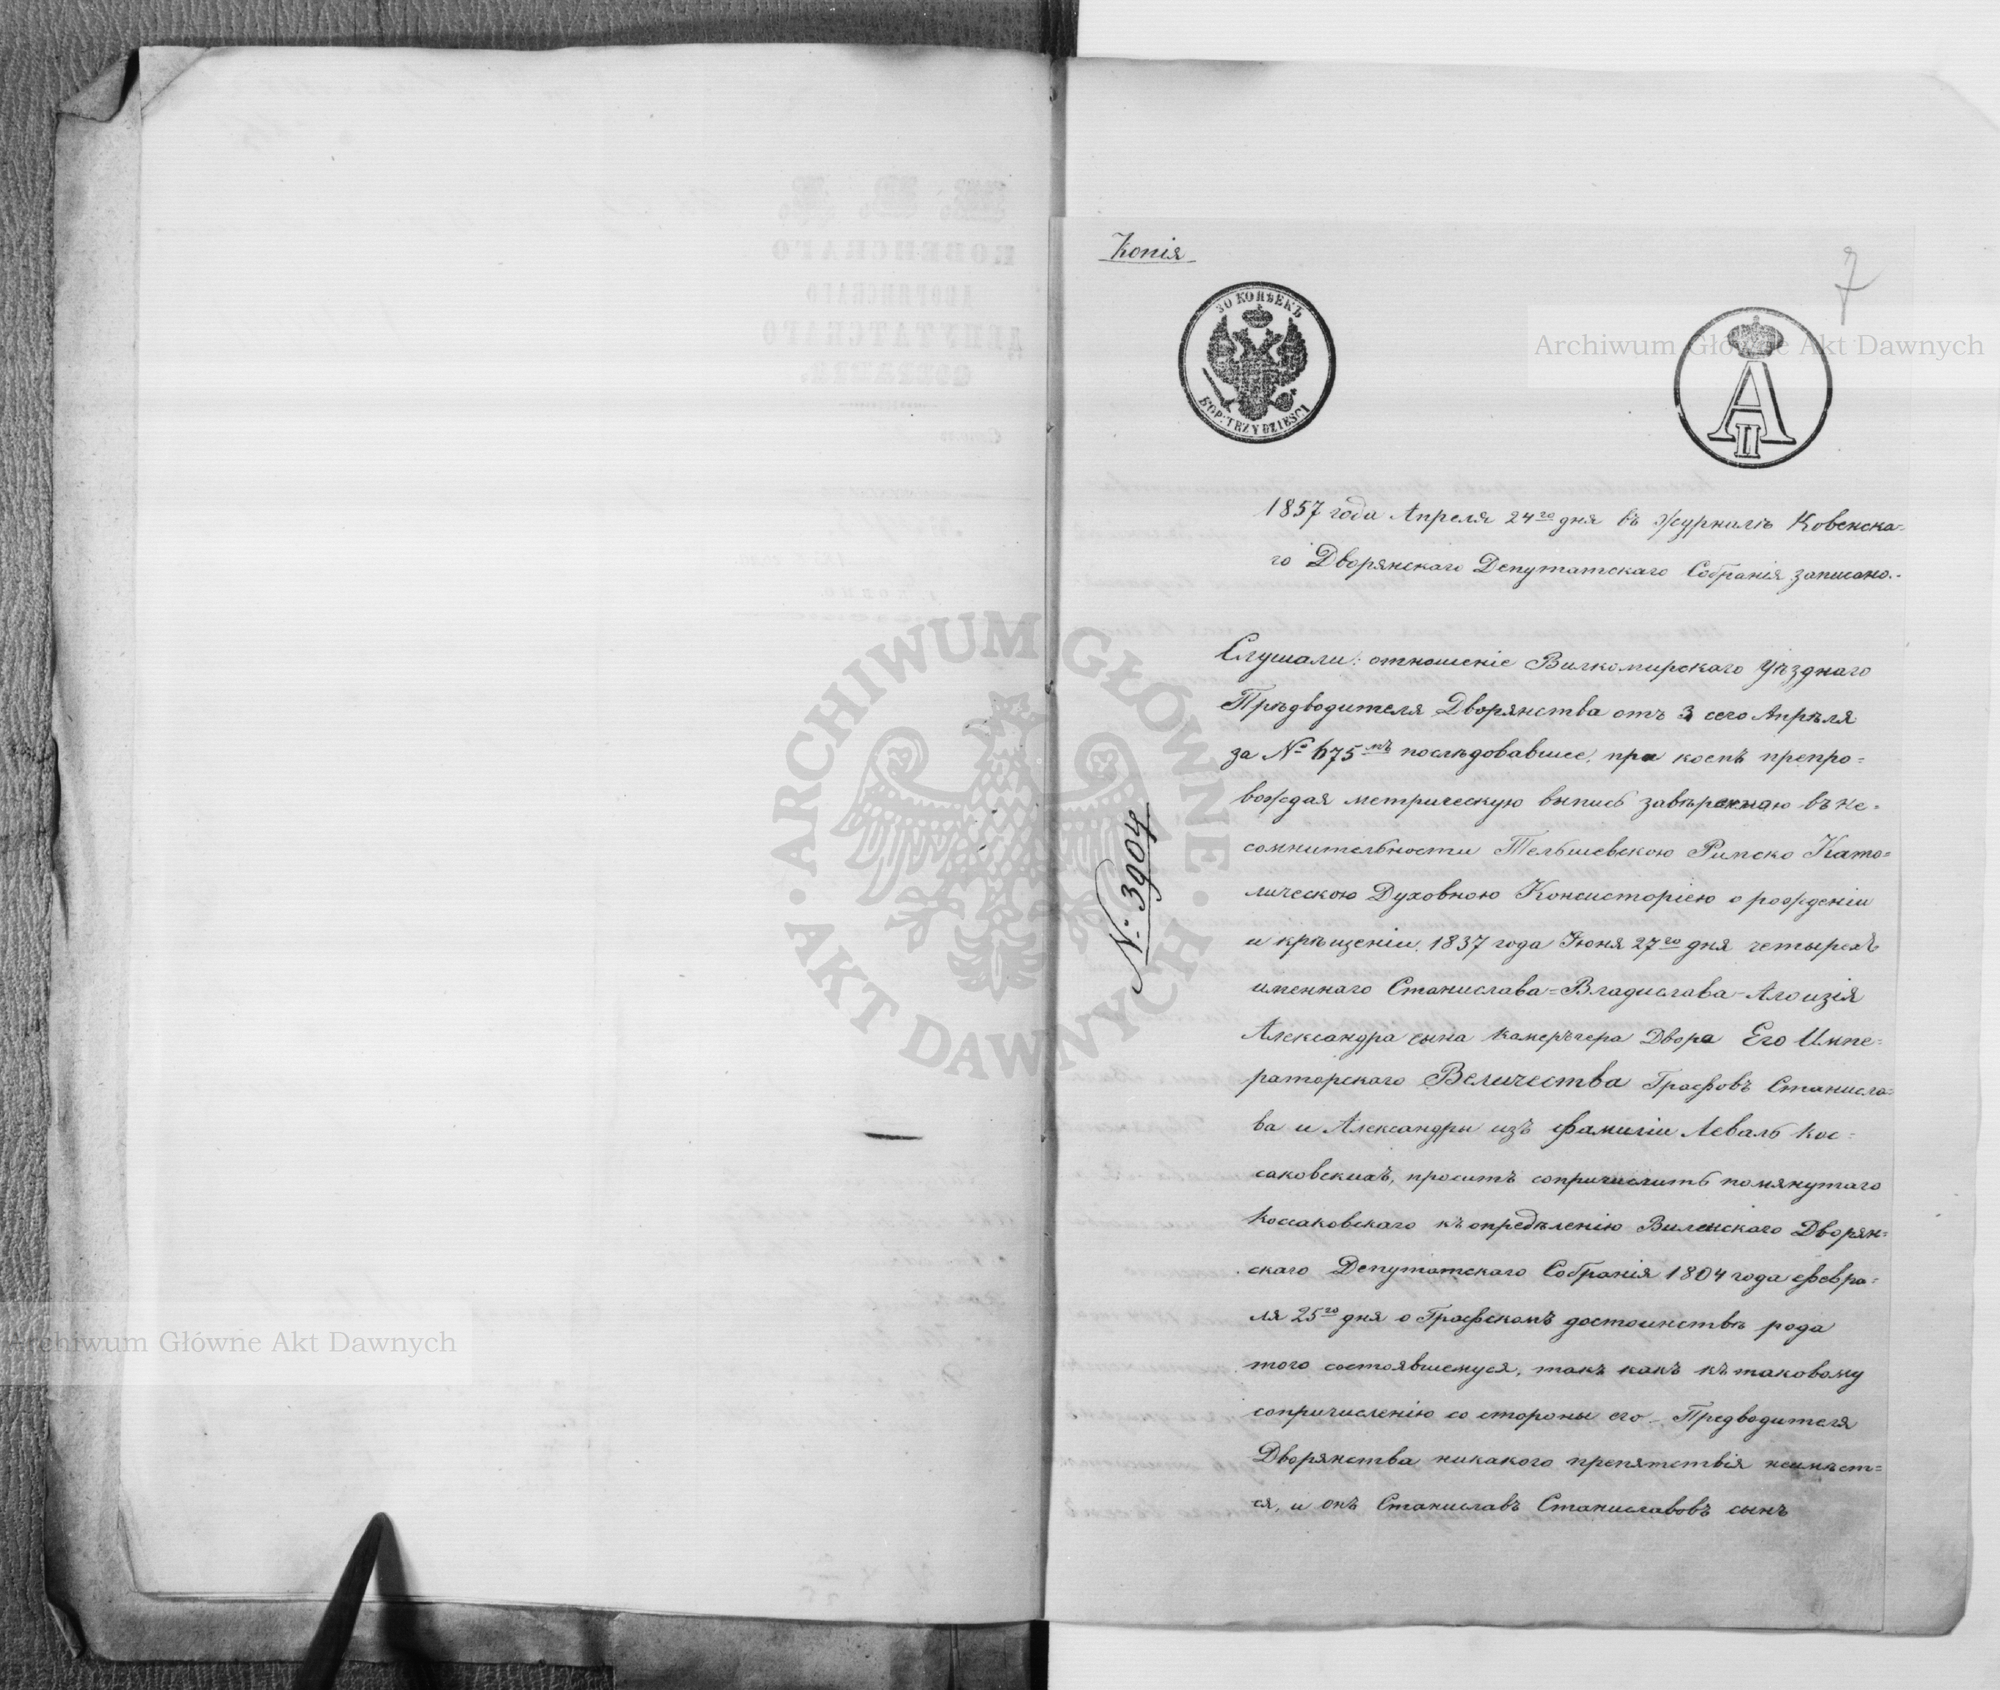 Копія
7
30 КОПѢЕКЪ
КОП: TRZYDZIESCI
А II
1857 года Апреля 24го дня въ журналѣ Ковенска-
го Дворянскаго Депутатскаго Собранія записано.-
Слушали: отношеніе Вилкомирскаго Уѣзднаго
Прѣдводителя Дворянства отъ 3 сего Апрѣля
за № 675мъ послѣдовавшее, при коемъ препро=
вождая метрическую выпись завѣренною въ не=
сомнительности Тельшевскою Римско Като=
лическою Духовною Консисторіею о рожденіи
и крѣщеніи 1837 года Іюня 27го дня четырехъ
именнаго Станислава=Владислава-Алоизія
Александра сына Камеръгера Двора Его Импе=
раторскаго Величества Графовъ Станисла=
ва и Александры изъ фамиліи Леваль Кос=
саковскихъ, проситъ сопричислить помянутаго
Коссаковскаго къ опредѣленію Виленскаго Дворян=
скаго Депутатскаго Собранія 1804 года февра=
ля 25го дня о Графскомъ достоинствѣ рода
того состоявшемуся, такъ какъ къ таковому
сопричисленію со стороны его Предводителя
Дворянства никакого препятствія неимѣет=
ся, и онъ Станиславъ Станиславовъ сынъ
№: 3904
Archiwum Główne Akt Dawnych
Archiwum Główne Akt Dawnych
ARCHIWUM GŁÓWNE · AKT DAWNYCH ·